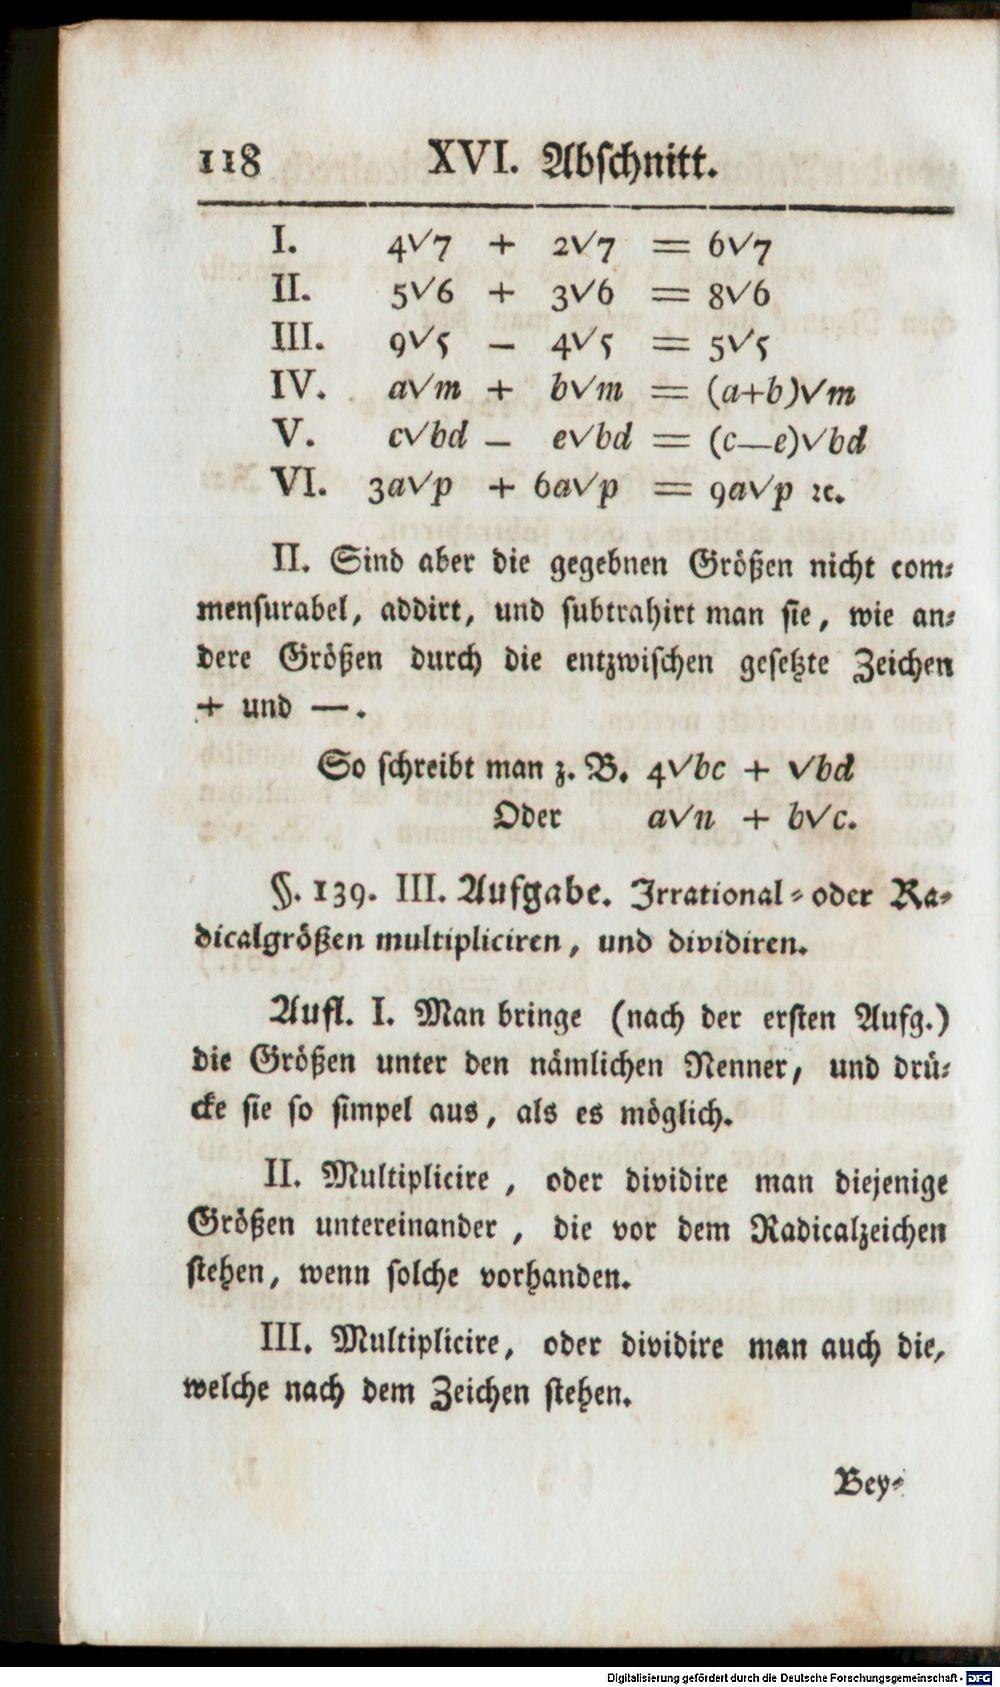 118 XVI. Abschnitt.
I. 4√7 + 2√7 = 6√7
II. 5√6 + 3√6 = 8√6
III. 9√5 − 4√5 = 5√5
IV. a√m + b√m = (a+b)√m
V. c√bd − e√bd = (c—e)√bd
VI. 3a√p + 6a√p = 9a√p ꝛc.
II. Sind aber die gegebnen Größen nicht com⸗
mensurabel, addirt, und subtrahirt man sie, wie an⸗
dere Größen durch die entzwischen gesetzte Zeichen
+ und —.
So schreibt man z. B. 4√bc + √bd
Oder a√n + b√c.
§. 139. III. Aufgabe. Irrational⸗oder Ra⸗
dicalgrößen multipliciren, und dividiren.
Aufl. I. Man bringe (nach der ersten Aufg.)
die Größen unter den nämlichen Nenner, und drü⸗
cke sie so simpel aus, als es möglich.
II. Multiplicire, oder dividire man diejenige
Größen untereinander, die vor dem Radicalzeichen
stehen, wenn solche vorhanden.
III. Multiplicire, oder dividire man auch die,
welche nach dem Zeichen stehen.
Bey⸗
Digitalisierung gefördert durch die Deutsche Forschungsgemeinschaft - DFG